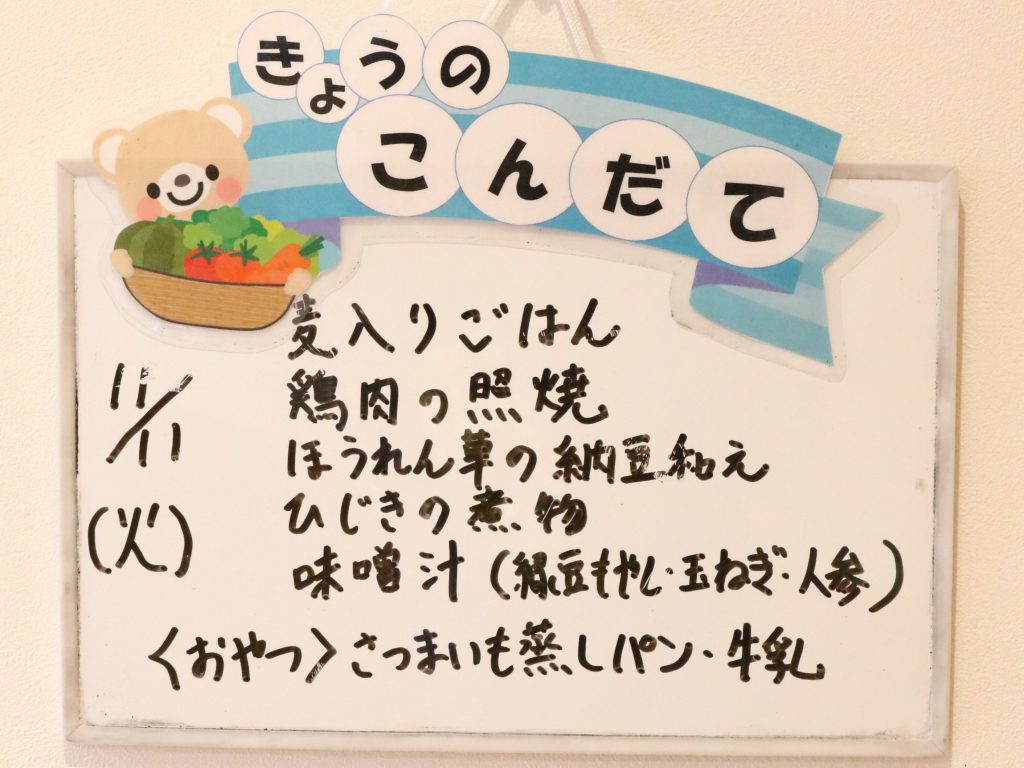 きょうの
こんだて
麦入りごはん
11/11
鶏肉の照焼
ほうれん草の納豆和え
(火)
ひじきの煮物
味噌汁(緑豆もやし・玉ねぎ・人参)
〈おやつ〉さつまいも蒸しパン・牛乳